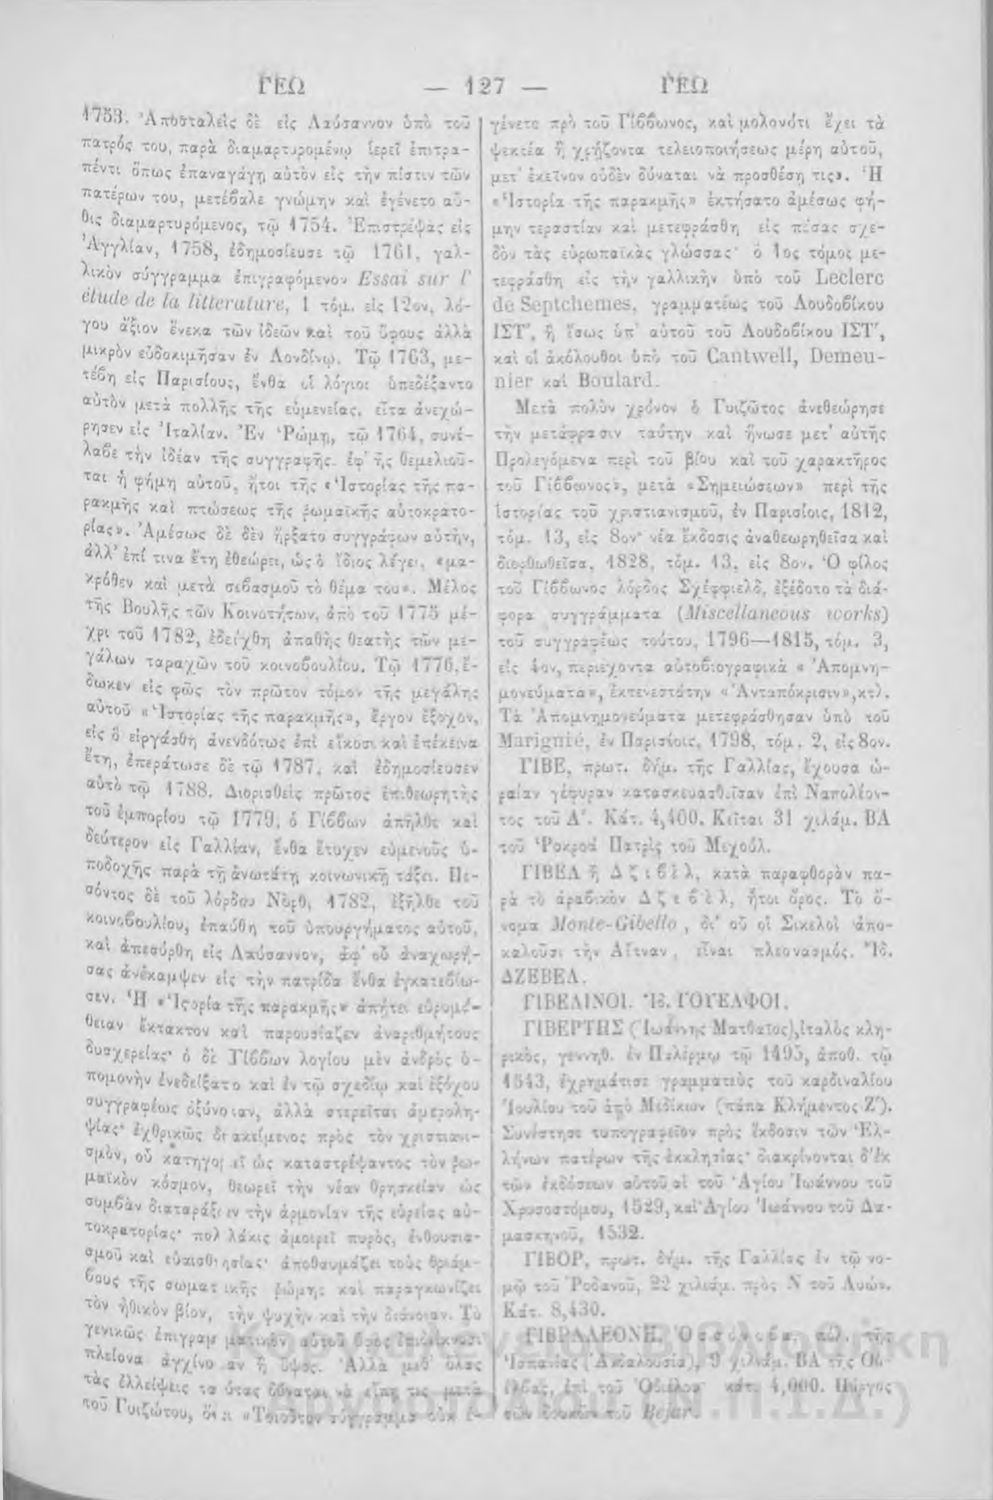 ΓΕΩ — 127 — ΓΕΩ
1753. Ἀποσταλεὶς δὲ εἰς Λαύσαννον ὑπὸ τοῦ
πατρός του, παρὰ διαμαρτυρομένῳ ἱερεῖ ἐπιτρα-
πέντι ὅπως ἐπαναγάγῃ αὐτὸν εἰς τὴν πίστιν τῶν
πατέρων του, μετέβαλε γνώμην καὶ ἐγένετο αὖ-
θις διαμαρτυρόμενος, τῷ 1754. Ἐπιστρέψας εἰς
Ἀγγλίαν, 1758, ἐδημοσίευσε τῷ 1761, γαλ-
λικὸν σύγγραμμα ἐπιγραφόμενον Essai sur l'
étude de la litterature, 1 τόμ. εἰς 12ον, λό-
γου ἄξιον ἕνεκα τῶν ἰδεῶν καὶ τοῦ ὕφους ἀλλὰ
μικρὸν εὐδοκιμῆσαν ἐν Λονδίνῳ. Τῷ 1763, με-
τέβη εἰς Παρισίους, ἔνθα οἱ λόγιοι ὑπεδέξαντο
αὐτὸν μετὰ πολλῆς τῆς εὐμενείας, εἶτα ἀνεχώ-
ρησεν εἰς Ἰταλίαν. Ἐν Ῥώμῃ, τῷ 1764, συνέ-
λαβε τὴν ἰδέαν τῆς συγγραφῆς, ἐφ' ἧς θεμελιοῦ-
ται ἡ φήμη αὐτοῦ, ἤτοι τῆς «Ἱστορίας τῆς πα-
ρακμῆς καὶ πτώσεως τῆς ῥωμαϊκῆς αὐτοκρατο-
ρίας». Ἀμέσως δὲ δὲν ἤρξατο συγγράφων αὐτήν,
ἀλλ' ἐπί τινα ἔτη ἐθεώρει, ὡς ὁ ἴδιος λέγει, «μα-
κρόθεν καὶ μετὰ σεβασμοῦ τὸ θέμα του». Μέλος
τῆς Βουλῆς τῶν Κοινοτήτων, ἀπὸ τοῦ 1775 μέ-
χρι τοῦ 1782, ἐδείχθη ἀπαθὴς θεατὴς τῶν με-
γάλων ταραχῶν τοῦ κοινοβουλίου. Τῷ 1776, ἔ-
δωκεν εἰς φῶς τὸν πρῶτον τόμον τῆς μεγάλης
αὐτοῦ «Ἱστορίας τῆς παρακμῆς», ἔργον ἔξοχον,
εἰς ὃ εἰργάσθη ἀνενδότως ἐπὶ εἴκοσι καὶ ἐπέκεινα
ἔτη, ἐπεράτωσε δὲ τῷ 1787, καὶ ἐδημοσίευσεν
αὐτὸ τῷ 1788. Διορισθεὶς πρῶτος ἐπιθεωρητὴς
τοῦ ἐμπορίου τῷ 1779, ὁ Γίββων ἀπῆλθε καὶ
δεύτερον εἰς Γαλλίαν, ἔνθα ἔτυχεν εὐμενοῦς ὑ-
ποδοχῆς παρὰ τῇ ἀνωτάτῃ κοινωνικῇ τάξει. Πε-
σόντος δὲ τοῦ λόρδου Νόρθ, 1782, ἐξῆλθε τοῦ
κοινοβουλίου, ἐπαύθη τοῦ ὑπουργήματος αὐτοῦ,
καὶ ἀπεσύρθη εἰς Λαύσαννον, ἀφ' οὗ ἀναχωρή-
σας ἀνέκαμψεν εἰς τὴν πατρίδα ἔνθα ἐγκατεβίω-
σεν. Ἡ «Ἱστορία τῆς παρακμῆς» ἀπῄτει εὐρυμά-
θειαν ἔκτακτον καὶ παρουσίαζεν ἀναριθμήτους
δυσχερείας· ὁ δὲ Γίββων λογίου μὲν ἀνδρὸς ὑ-
πομονὴν ἐνεδείξατο καὶ ἐν τῷ σχεδίῳ καὶ ἐξόχου
συγγραφέως ὀξύνοιαν, ἀλλὰ στερεῖται ἀμερολη-
ψίας· ἐχθρικῶς διακείμενος πρὸς τὸν χριστιανι-
σμόν, οὗ κατηγορεῖ ὡς καταστρέψαντος τὸν ῥω-
μαϊκὸν κόσμον, θεωρεῖ τὴν νέαν θρησκείαν ὡς
συμβὰν διαταράξειεν τὴν ἁρμονίαν τῆς εὐρείας αὐ-
τοκρατορίας· πολλάκις ἀμοιρεῖ πυρός, ἐνθουσια-
σμοῦ καὶ εὐαισθησίας· ἀποθαυμάζει τοὺς θριάμ-
βους τῆς σωματικῆς ῥώμης καὶ παραγκωνίζει
τὸν ἠθικὸν βίον, τὴν ψυχὴν καὶ τὴν διάνοιαν. Τὸ
γενικῶς ἐπιγραμματικὸν αὐτοῦ ὕφος
πλείονα ἀγχίνοιαν ἢ ὕψος. Ἀλλὰ μεθ' ὅλας
τὰς ἐλλείψεις ταύτας δύναται νὰ εἴπῃ τις μετὰ
τοῦ Γυιζώτου, ὅτι «Τοιοῦτον σύγγραμμα οὐκ ἐ-
γένετο πρὸ τοῦ Γίββωνος, καὶ μολονότι ἔχει τὰ
ψεκτέα ἢ χρῄζοντα τελειοποιήσεως μέρη αὐτοῦ,
μετ' ἐκεῖνον οὐδὲν δύναται νὰ προσθέσῃ τις». Ἡ
«Ἱστορία τῆς παρακμῆς» ἐκτήσατο ἀμέσως φή-
μην τεραστίαν καὶ μετεφράσθη εἰς πάσας σχε-
δὸν τὰς εὐρωπαϊκὰς γλώσσας· ὁ 1ος τόμος με-
τεφράσθη εἰς τὴν γαλλικὴν ὑπὸ τοῦ Leclerc
de Septchemes, γραμματέως τοῦ Λουδοβίκου
ΙΣΤ', ἢ ἴσως ὑπ' αὐτοῦ τοῦ Λουδοβίκου ΙΣΤ',
καὶ οἱ ἀκόλουθοι ὑπὸ τοῦ Cantwell, Demeu-
nier καὶ Boulard.
Μετὰ πολὺν χρόνον ὁ Γυιζῶτος ἀνεθεώρησε
τὴν μετάφρασιν ταύτην καὶ ἥνωσε μετ' αὐτῆς
Προλεγόμενα περὶ τοῦ βίου καὶ τοῦ χαρακτῆρος
τοῦ Γίββωνος», μετὰ «Σημειώσεων» περὶ τῆς
ἱστορίας τοῦ χριστιανισμοῦ, ἐν Παρισίοις, 1812,
τόμ. 13, εἰς 8ον· νέα ἔκδοσις ἀναθεωρηθεῖσα καὶ
διορθωθεῖσα, 1828, τόμ. 13, εἰς 8ον. Ὁ φίλος
τοῦ Γίββωνος λόρδος Σχέφφιελδ, ἐξέδοτο τὰ διά-
φορα συγγράμματα (Miscellaneous works)
τοῦ συγγραφέως τούτου, 1796—1815, τόμ. 3,
εἰς 4ον, περιέχοντα αὐτοβιογραφικὰ «Ἀπομνη-
μονεύματα», ἐκτενεστάτην «Ἀνταπόκρισιν», κτλ.
Τὰ Ἀπομνημονεύματα μετεφράσθησαν ὑπὸ τοῦ
Marignié, ἐν Παρισίοις, 1798, τόμ. 2, εἰς 8ον.
ΓΙΒΕ, πρωτ. δήμ. τῆς Γαλλίας, ἔχουσα ὡ-
ραίαν γέφυραν κατασκευασθεῖσαν ἐπὶ Ναπολέον-
τος τοῦ Α'. Κάτ. 4,400. Κεῖται 31 χιλάμ. ΒΑ
τοῦ Ῥοκροά Πατρὶς τοῦ Μεχούλ.
ΓΙΒΕΛ ἢ Δζιβέλ, κατὰ παραφθορὰν πα-
ρὰ τὸ ἀραβικὸν Δζεβέλ, ἤτοι ὄρος. Τὸ ὄ-
νομα Monte-Gibello, δι' οὗ οἱ Σικελοὶ ἀπο-
καλοῦσι τὴν Αἴτναν, εἶναι πλεονασμός. Ἴδ.
ΔΖΕΒΕΛ.
ΓΙΒΕΛΙΝΟΙ. Ἴδ. ΓΟΥΕΛΦΟΙ.
ΓΙΒΕΡΤΗΣ (Ἰωάννης Ματθαῖος), ἰταλὸς κλη-
ρικός, γεννηθ. ἐν Παλέρμῳ τῷ 1495, ἀποθ. τῷ
1543, ἐχρημάτισε γραμματεὺς τοῦ καρδιναλίου
Ἰουλίου τοῦ ἀπὸ Μεδίκων (πάπα Κλήμεντος Ζ').
Συνέστησε τυπογραφεῖον πρὸς ἔκδοσιν τῶν Ἑλ-
λήνων πατέρων τῆς ἐκκλησίας· διακρίνονται δ' ἐκ
τῶν ἐκδόσεων αὐτοῦ αἱ τοῦ Ἁγίου Ἰωάννου τοῦ
Χρυσοστόμου, 1529, καὶ Ἁγίου Ἰωάννου τοῦ Δα-
μασκηνοῦ, 1532.
ΓΙΒΟΡ, πρωτ. δήμ. τῆς Γαλλίας ἐν τῷ νο-
μῷ τοῦ Ῥοδανοῦ, 22 χιλιάμ. πρὸς Ν τοῦ Λυών.
Κάτ. 8,430.
ΓΙΒΡΑΛΕΟΝΗ, πόλ. τῆς
Ἱσπανίας (Ἀνδαλουσία), 9 χιλιάμ. ΒΑ τῆς Οὐ-
έλβας, ἐπὶ τοῦ κάτ. 4,000. Πύργος
τῶν δουκῶν τοῦ Bejar.
(Π.Ι.Δ.)